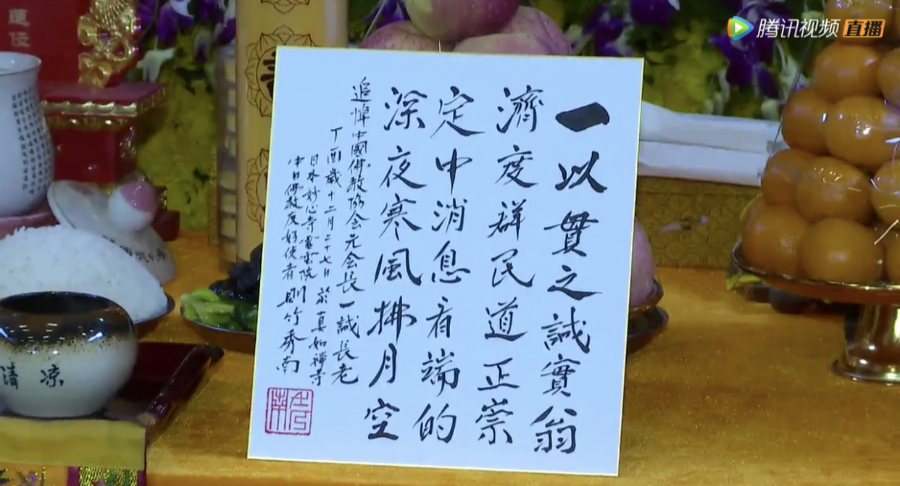 一以貫之誠實翁
濟度群民道正崇
定中消息看端的
深夜寒風拂月空
追悼中國佛教協會元会長一誠長老
丁酉歲十二月二十七日 於真如禅寺
日本妙心寺霊雲院
中日佛教友好使者 則竹秀南
清凉
腾讯视频 直播